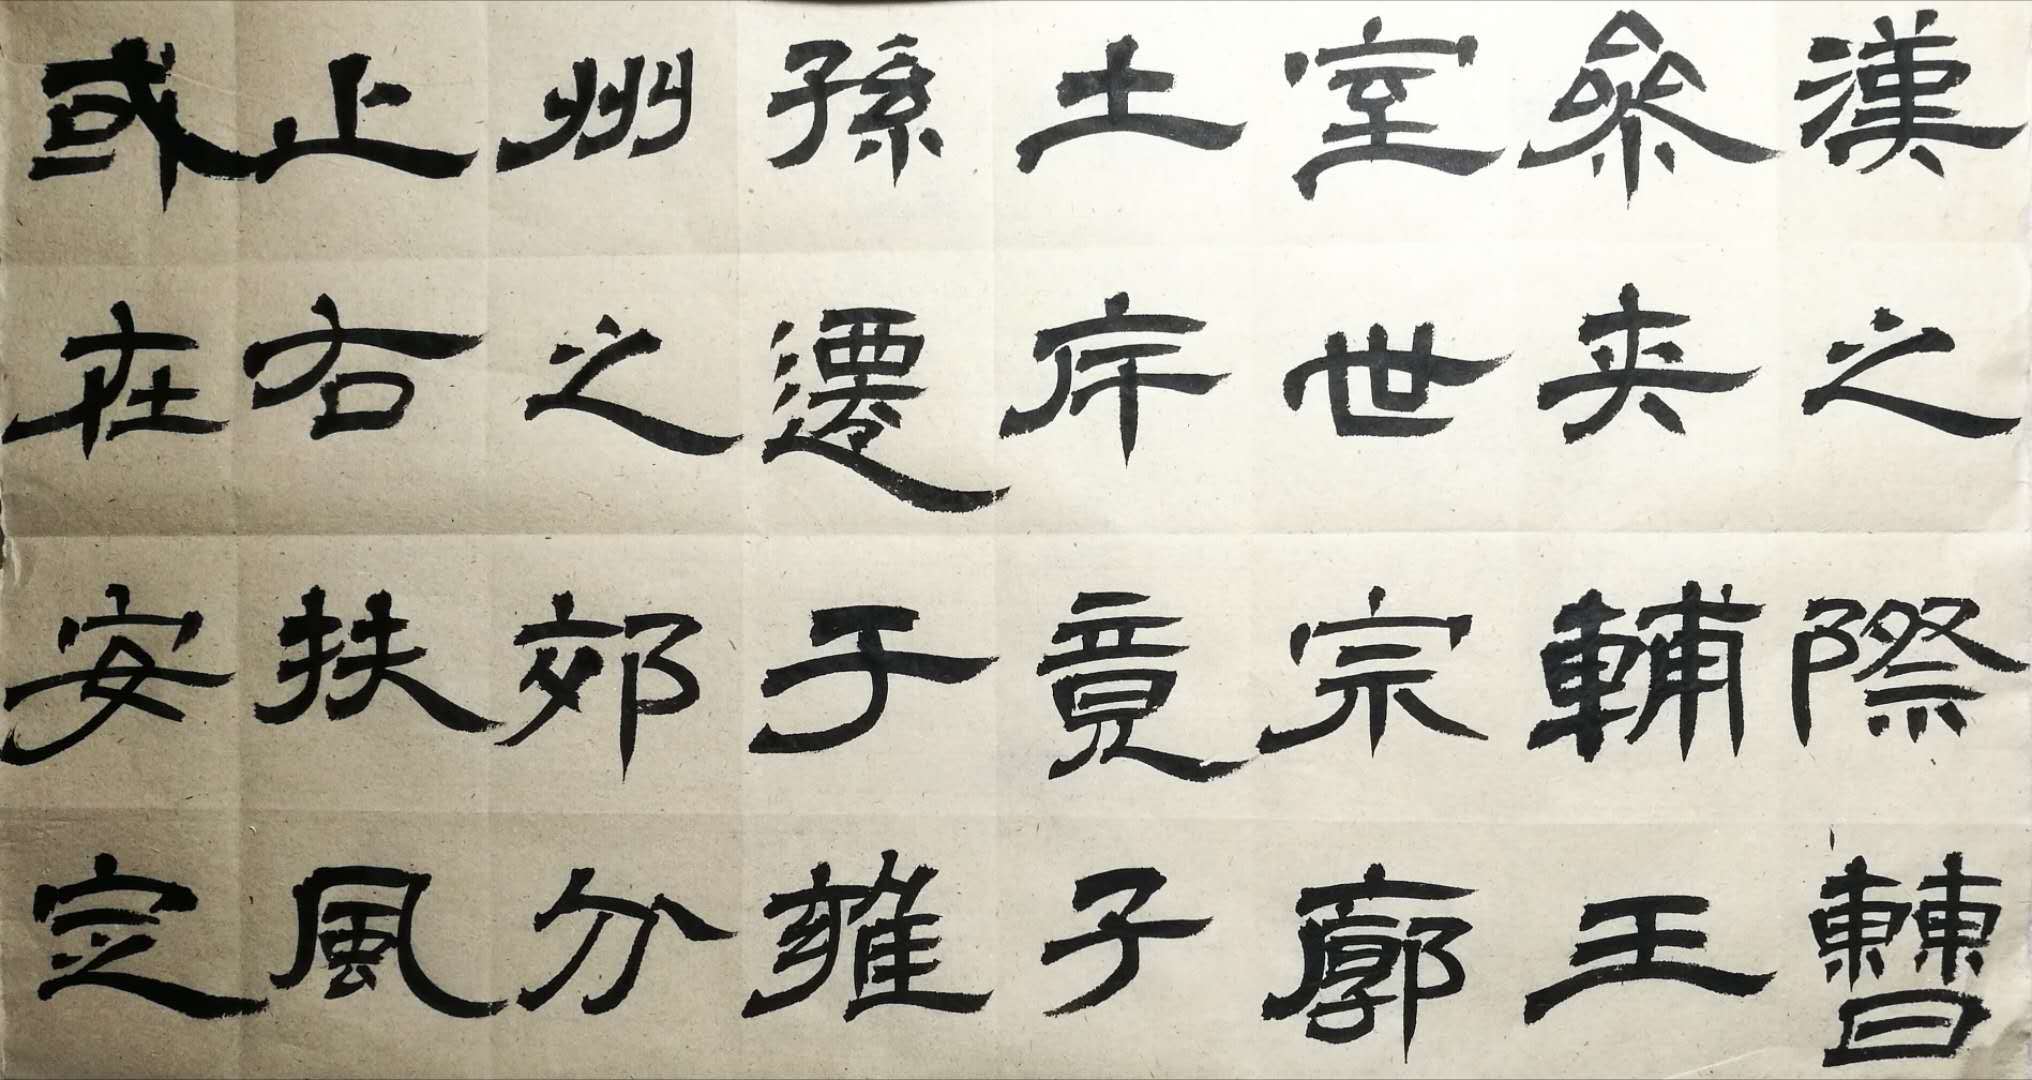 漢之際曹
參夾輔王
室世宗廓
土斥竟子
孫遷于雍
州之郊分
止右扶風
或在安定